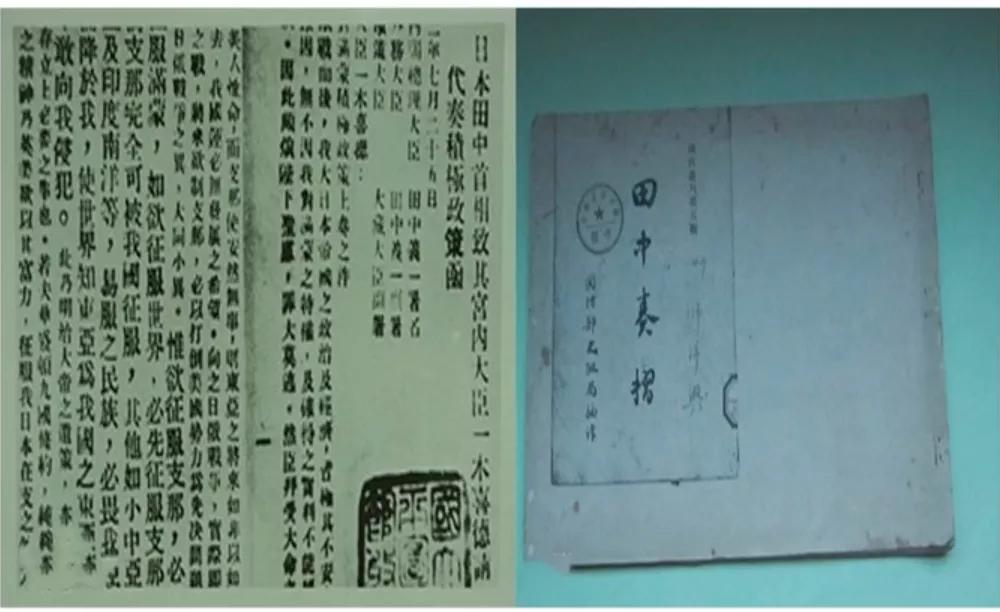 日本田中首相致其宮內大臣一木喜德函
代奏積極政策函
二年七月二十五日
內閣總理大臣 田中義一署名
外務大臣 田中義一署
鐵道大臣 大藏大臣副署
大臣一木喜德：
對滿蒙積極政策上奏之件
歐戰而後，我大日本帝國之政治及經濟，皆極其不安
原因，無不因我對滿蒙之特權，及確得之實利不能
，因此頗煩陛下聖慮，罪大莫逃，然臣拜受大命之
英人性命，而支那使安然無事，則東亞之將來如非以如
去，我國運必無發展之希望，向之日俄戰爭，實際即
之戰，將來欲制支那，必以打倒美國勢力爲先決問題
日俄戰爭之異，大同小異。惟欲征服支那，必
服滿蒙，如欲征服世界，必先征服支那
支那完全可被我國征服，其他如小中亞
及印度南洋等，易服之民族，必畏我
降於我，使世界知東亞爲我國之東亞
敢向我侵犯。此乃明治大帝之遺策，亦
存立上必要之事也，若夫華盛頓九國條約，純
之精神乃英美欲以其富力，征服我日本在支之
田中奏摺